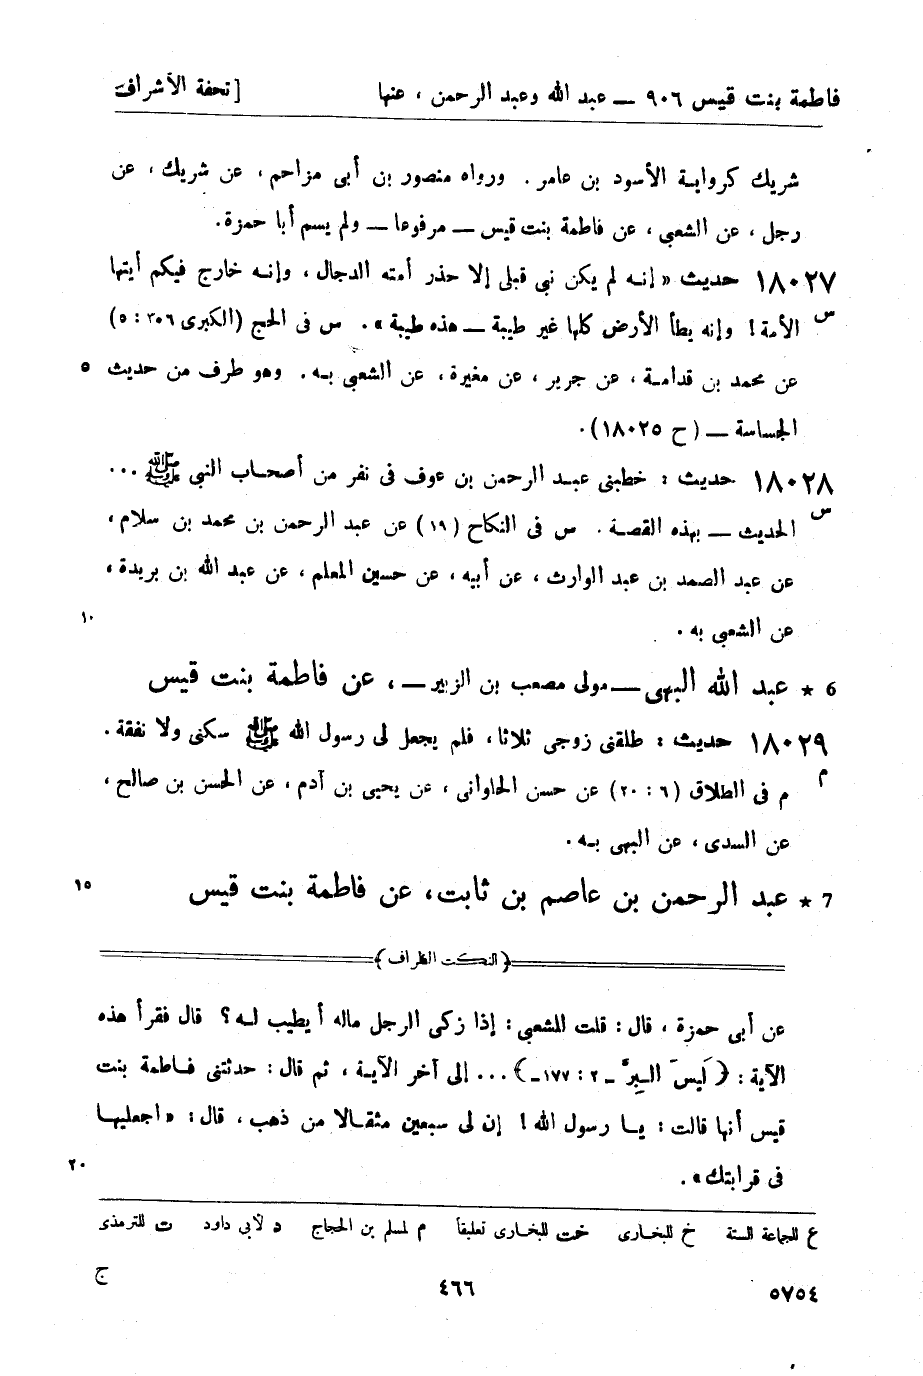 فاطمة بنت قيس ٩٠٦ — عبد الله وعبد الرحمن ، عنها [ تحفة الأشراف
شريك كرواية الأسود بن عامر . ورواه منصور بن أبى مزاحم ، عن شريك ، عن
رجل ، عن الشعبي ، عن فاطمة بنت قيس — مرفوعا — ولم يسم أبا حمزة .
١٨٠٢٧ حديث « إنه لم يكن نبي قبلي إلا حذر أمته الدجال ، وإنه خارج فيكم أيتها
س الأمة ! وإنه يطأ الأرض كلها غير طيبة — هذه طيبة » . س فى الحج (الكبرى ٣٠٦ : ٥)
عن محمد بن قدامة ، عن جرير ، عن مغيرة ، عن الشعبي به . وهو طرف من حديث ٥
الجساسة — (ح ١٨٠٢٥) .
١٨٠٢٨ حديث : خطبنى عبد الرحمن بن عوف فى نفر من أصحاب النبي ﷺ ...
س الحديث — بهذه القصة . س فى النكاح (١٩) عن عبد الرحمن بن محمد بن سلام ،
عن عبد الصمد بن عبد الوارث ، عن أبيه ، عن حسين المعلم ، عن عبد الله بن بريدة ،
عن الشعبي به . ١٠
6 ★ عبد الله البهى — مولى مصعب بن الزبير — ، عن فاطمة بنت قيس
١٨٠٢٩ حديث : طلقنى زوجى ثلاثا ، فلم يجعل لى رسول الله ﷺ سكنى ولا نفقة .
م م فى الطلاق (٦ : ٢٠) عن حسن الحلوانى ، عن يحيى بن آدم ، عن الحسن بن صالح ،
عن السدى ، عن البهى به .
7 ★ عبد الرحمن بن عاصم بن ثابت ، عن فاطمة بنت قيس ١٥
﴿النكت الظراف﴾
عن أبى حمزة ، قال : قلت للشعبي : إذا زكى الرجل ماله أ يطيب له ؟ قال فقرأ هذه
الآية : ﴿ لَيسَ البِرَّ ـ ٢ : ١٧٧ـ ﴾ ... إلى آخر الآية ، ثم قال : حدثتنى فاطمة بنت
قيس أنها قالت : يا رسول الله ! إن لى سبعين مثقالا من ذهب ، قال : « اجعليها
فى قرابتك » . ٢٠
ع للجماعة الستة خ للبخارى خت للبخارى تعليقا م لمسلم بن الحجاج د لأبي داود ت للترمذى
٥٧٥٤ ٤٦٦ ج